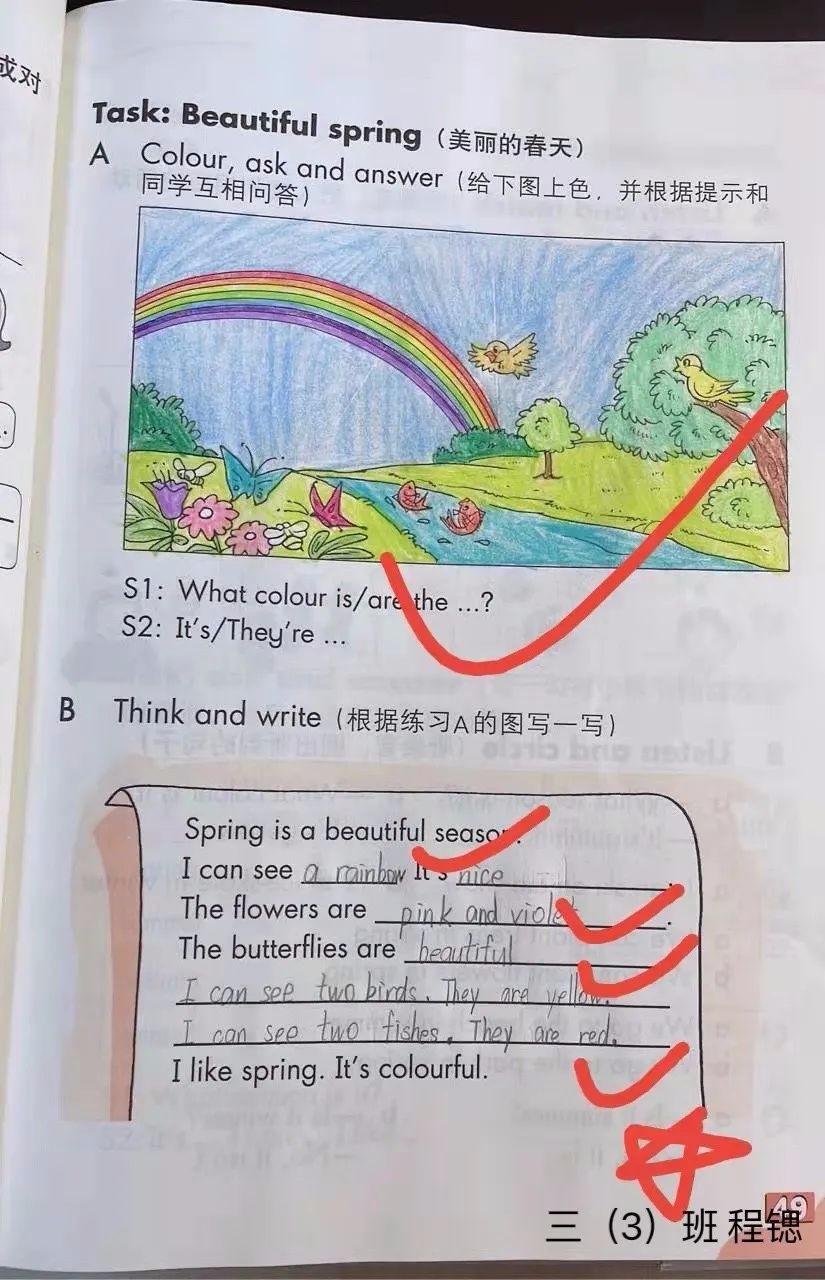 或对
Task: Beautiful spring (美丽的春天)
A Colour, ask and answer (给下图上色，并根据提示和
同学互相问答)
S1: What colour is/are the ...?
S2: It's/They're ...
B Think and write (根据练习A的图写一写)
Spring is a beautiful season.
I can see a rainbow It's nice.
The flowers are pink and violet.
The butterflies are beautiful
I can see two birds. They are yellow.
I can see two fishes. They are red.
I like spring. It's colourful.
49
三（3）班 程锶